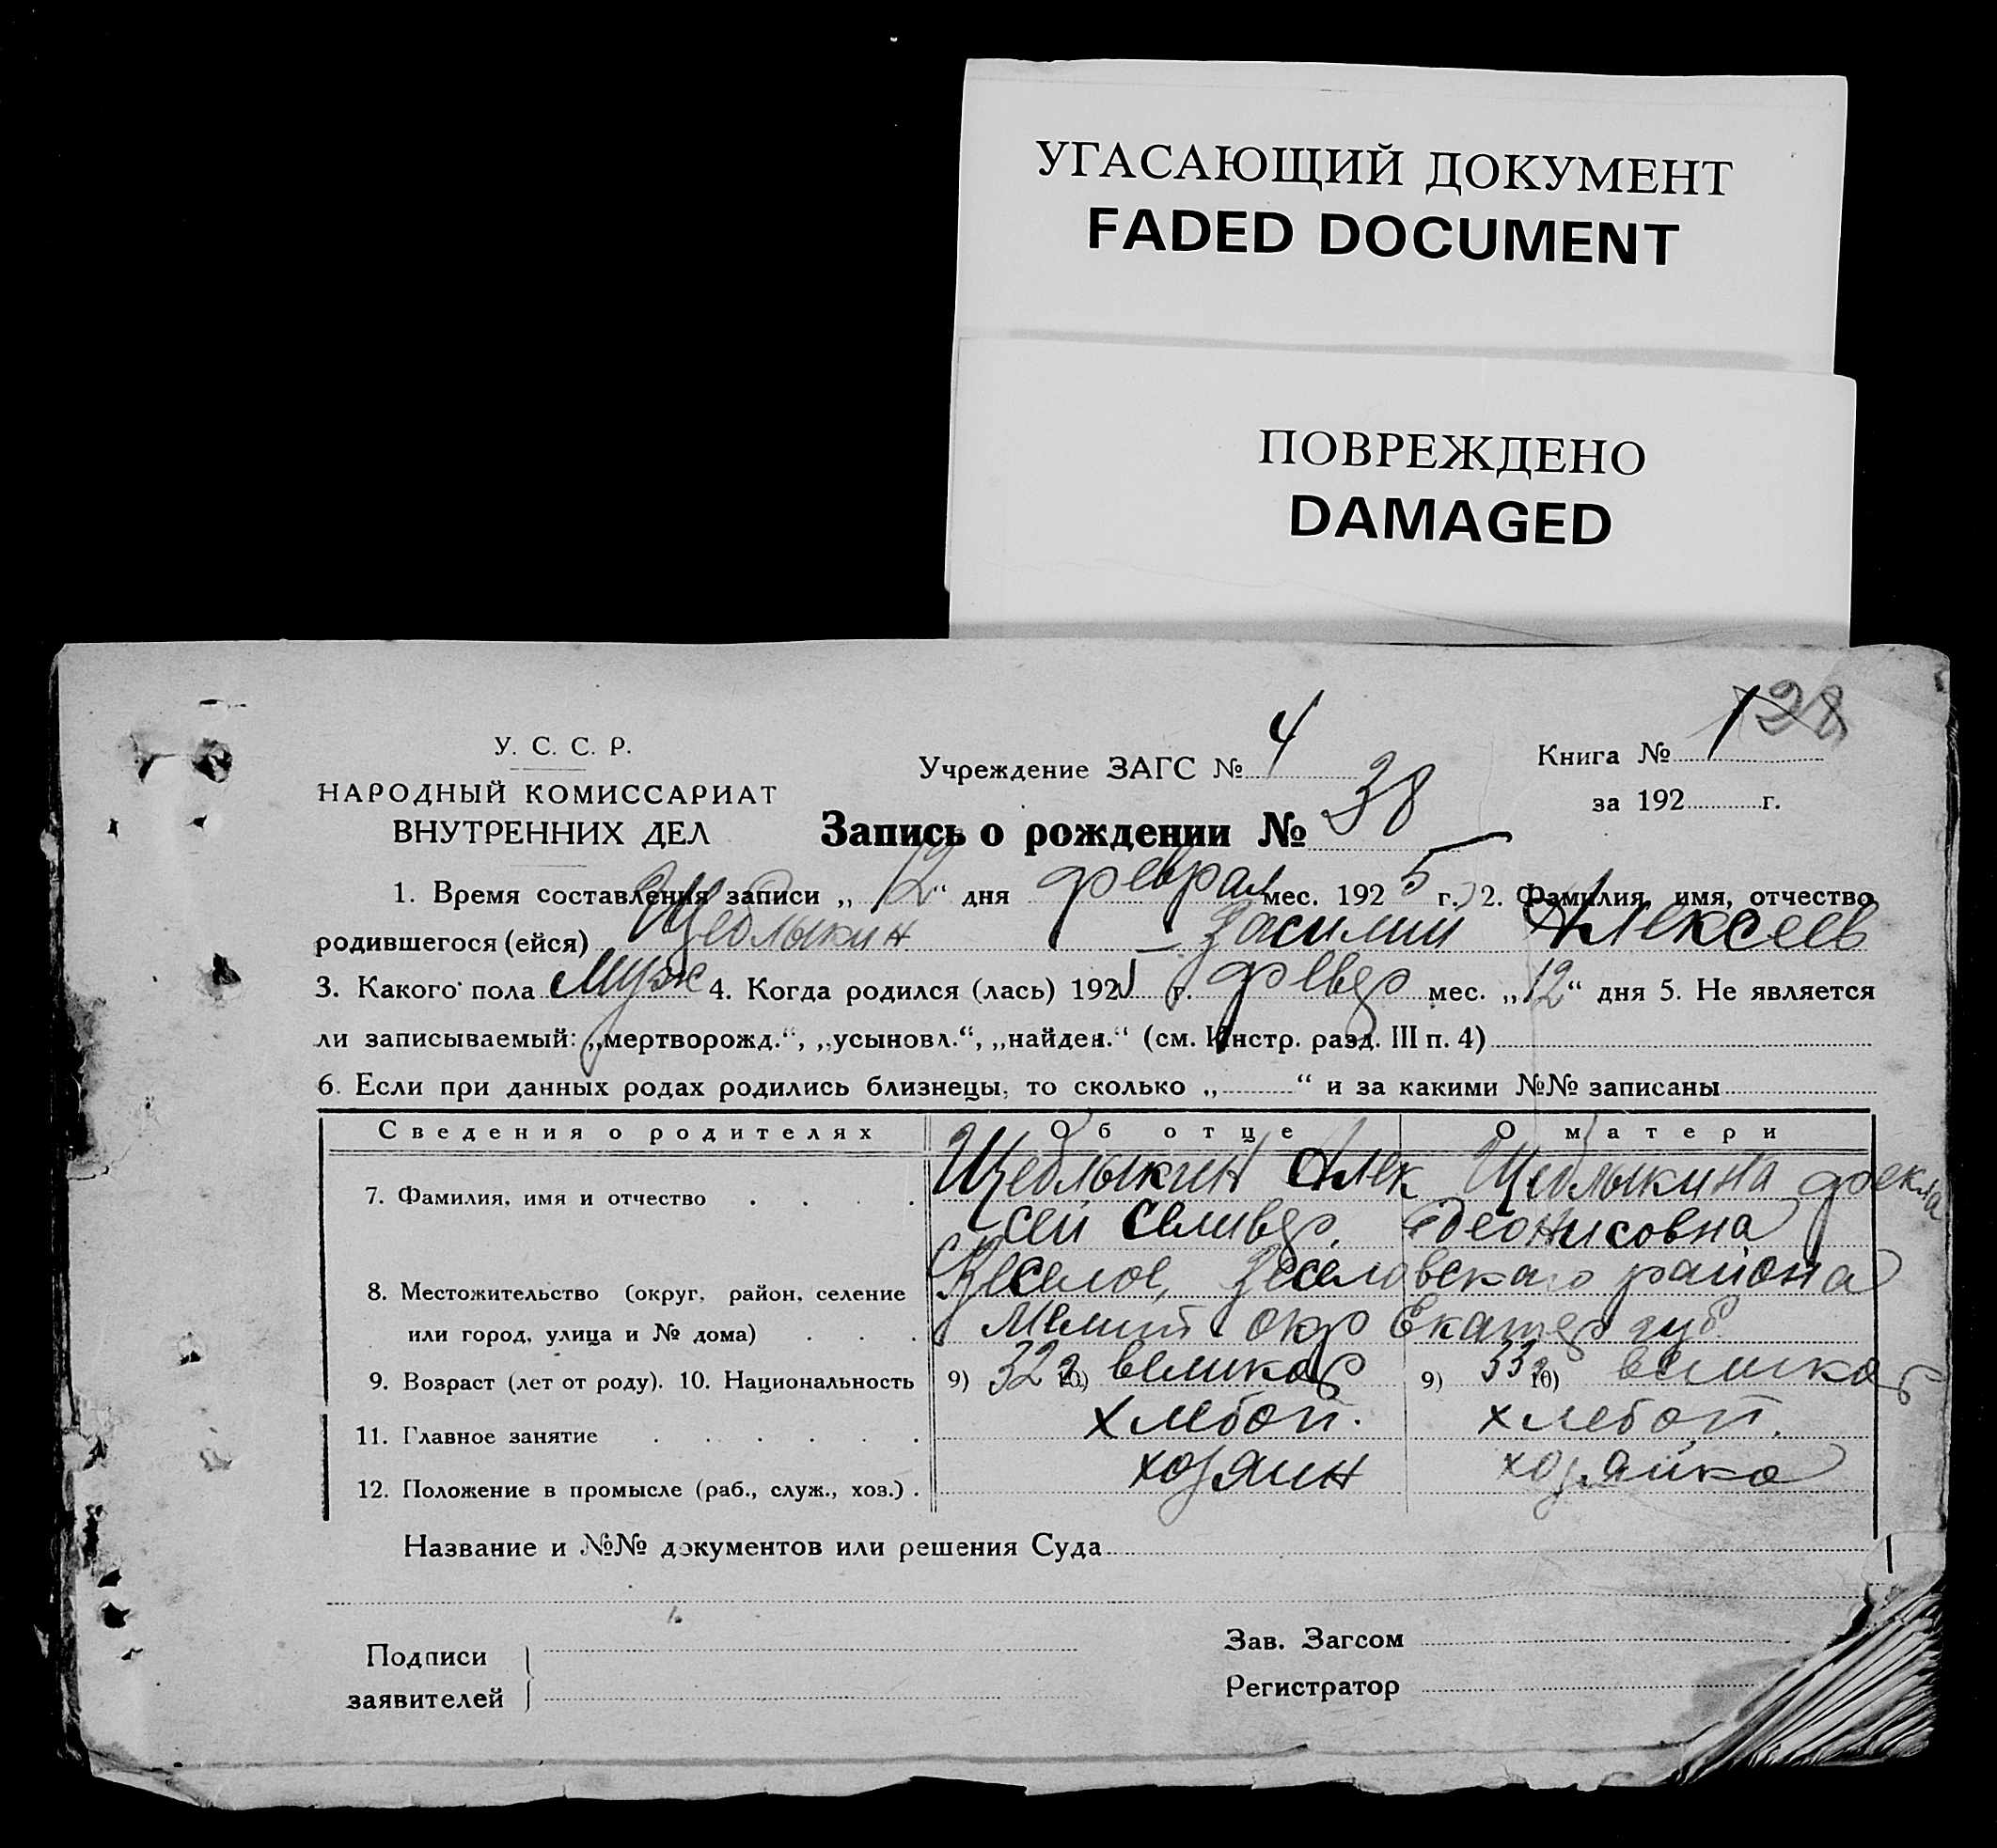 УГАСАЮЩИЙ ДОКУМЕНТ
FADED DOCUMENT
ПОВРЕЖДЕНО
DAMAGED
128
У. С. С. Р.
НАРОДНЫЙ КОМИССАРИАТ
ВНУТРЕННИХ ДЕЛ
Учреждение ЗАГС № 4
Книга № 1
за 192 г.
Запись о рождении № 38
1. Время составления записи „ 12 “ дня феврал мес. 192 5 г. 2. Фамилия, имя, отчество
родившегося (ейся) Щеблыкин Василий Алексеев
3. Какого пола Муж 4. Когда родился (лась) 1925 г. февр мес. „ 12 “ дня 5. Не является
ли записываемый: „мертворожд.“, „усыновл.“, „найден.“ (см. Инстр. разд. III п. 4)
6. Если при данных родах родились близнецы, то сколько „ “ и за какими №№ записаны
Сведения о родителях Об отце О матери
7. Фамилия, имя и отчество Щеблыкин Алек Щеблыкина Фекла
сей Селивер. Деонисовна
8. Местожительство (округ, район, селение Веселое, Веселовскаго района
или город, улица и № дома) Мелит окр Екатер губ.
9. Возраст (лет от роду). 10. Национальность 9) 32 10) великор 9) 33 10) великор
11. Главное занятие хлебоп. хлебоп.
12. Положение в промысле (раб., служ., хоз.) хозяин хозяйка
Название и №№ документов или решения Суда
Подписи
заявителей
Зав. Загсом
Регистратор